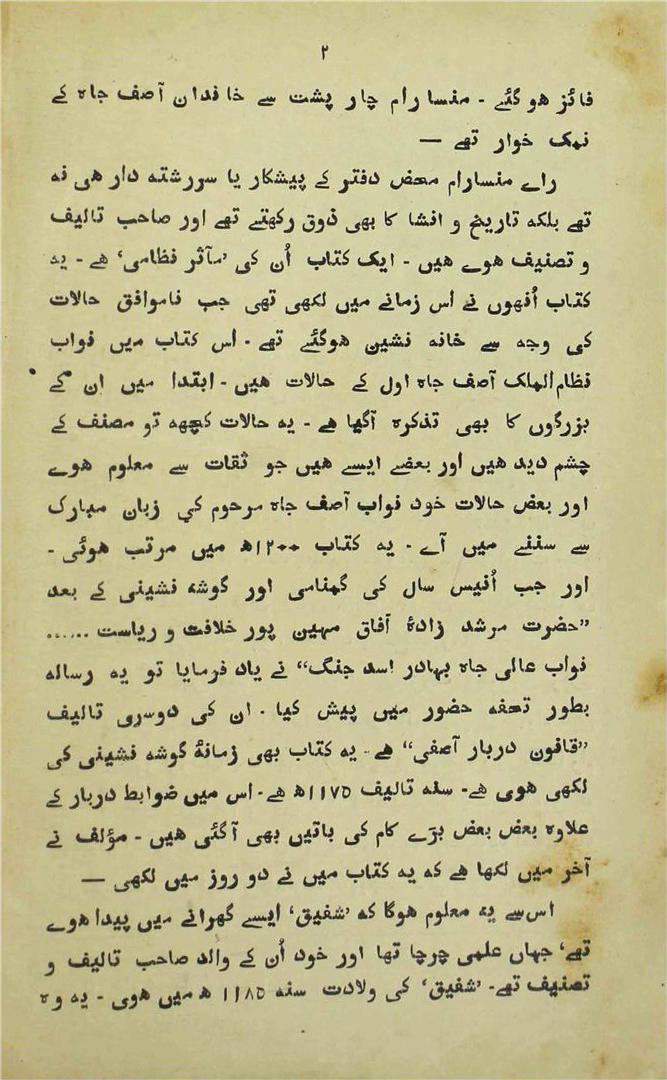 ۲
فائز هو گئے - منسا رام چار پشت سے خاندان آصف جاہ کے
نمک خوار تھے —
راے منسارام محض دفتر کے پیشکار یا سررشتہ دار هی نہ
تھے بلکہ تاریخ و انشا کا بھی ذوق رکھتے تھے اور صاحب تالیف
و تصنیف هوے هیں - ایک کتاب اُن کی ’مآثر نظامی‘ هے - یہ
کتاب اُنھوں نے اس زمانے میں لکھی تھی جب ناموافق حالات
کی وجہ سے خانہ نشین هوگئے تھے - اس کتاب میں نواب
نظام الملک آصف جاہ اول کے حالات هیں - ابتدا میں ان کے
بزرگوں کا بھی تذکرہ آگیا هے - یہ حالات کچھہ تو مصنف کے
چشم دید هیں اور بعضے ایسے هیں جو ثقات سے معلوم هوے
اور بعض حالات خود نواب آصف جاہ مرحوم کی زبان مبارک
سے سننے میں آے - یہ کتاب ۱۲۰۰ھ میں مرتب هوئی -
اور جب اُنیس سال کی گمنامی اور گوشہ نشینی کے بعد
”حضرت مرشد زادۂ آفاق مہین پور خلافت و ریاست ......
نواب عالی جاہ بہادر اسد جنگ“ نے یاد فرمایا تو یہ رسالہ
بطور تحفہ حضور میں پیش کیا - ان کی دوسری تالیف
”قانون دربار آصفی“ هے - یہ کتاب بھی زمانۂ گوشہ نشینی کی
لکھی هوی هے - سنہ تالیف ۱۱۷۵ھ هے - اس میں ضوابط دربار کے
علاوہ بعض بعض بڑے کام کی باتیں بھی آگئی هیں - مؤلف نے
آخر میں لکھا هے کہ یہ کتاب میں نے دو روز میں لکھی —
اس سے یہ معلوم هوگا کہ ’شفیق‘ ایسے گھرانے میں پیدا هوے
تھے‘ جہاں علمی چرچا تھا اور خود اُن کے والد صاحب تالیف و
تصنیف تھے - ’شفیق‘ کی ولادت سنہ ۱۱۸۵ ھ میں هوی - یہ وہ